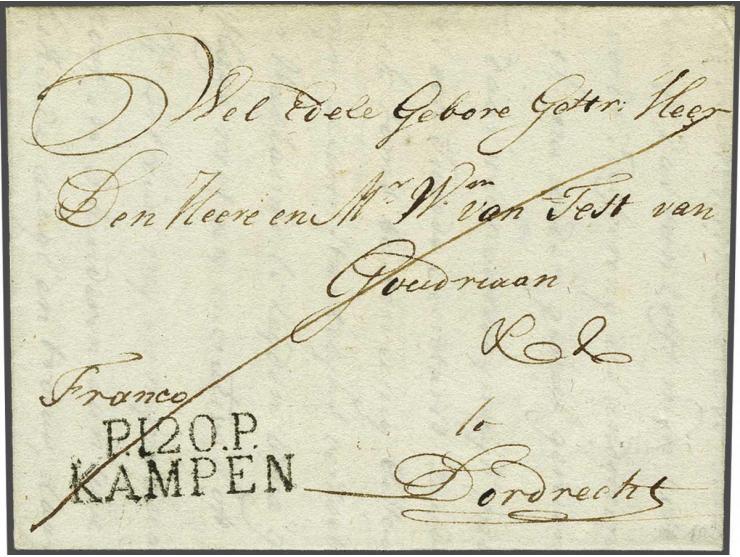 Wel Edele Gebore Gestr: Heer
Den Heere en Mr Wm van Test van
Goudriaan
& &
Franco
P.120.P.
KAMPEN
te
Dordrecht